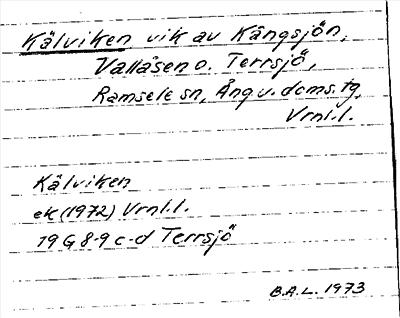 Kälviken, vik av Kångsjön,
Vallåsen o. Terrsjö,
Ramsele sn, Ång v. doms. tg,
Vrnl. l.
Kälviken
ek (1972) Vrnl. l.
19 G 8-9 c-d Terrsjö
B.A.L. 1973